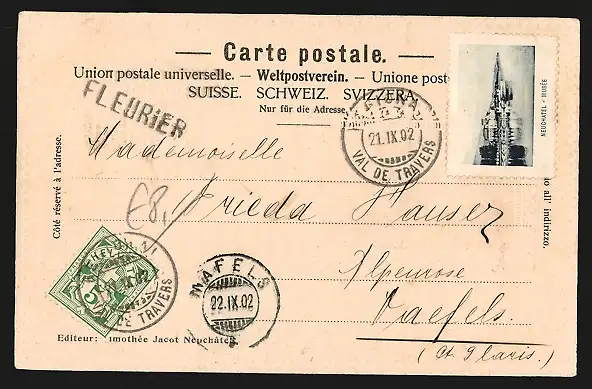 — Carte postale. —
Union postale universelle. — Weltpostverein. — Unione post
SUISSE. SCHWEIZ. SVIZZERA.
Nur für die Adresse
FLEURIER
21.IX.02
VAL DE TRAVERS
NEUCHATEL - MUSÉE
Côté réservé à l'adresse.
Mademoiselle
Frieda Hauser
Alpenrose
Naefels.
(Ct. Glaris.)
lato all' indirizzo.
£8,
5
VAL DE TRAVERS
NÄFELS
22.IX.02
Editeur: Timothée Jacot Neuchâtel